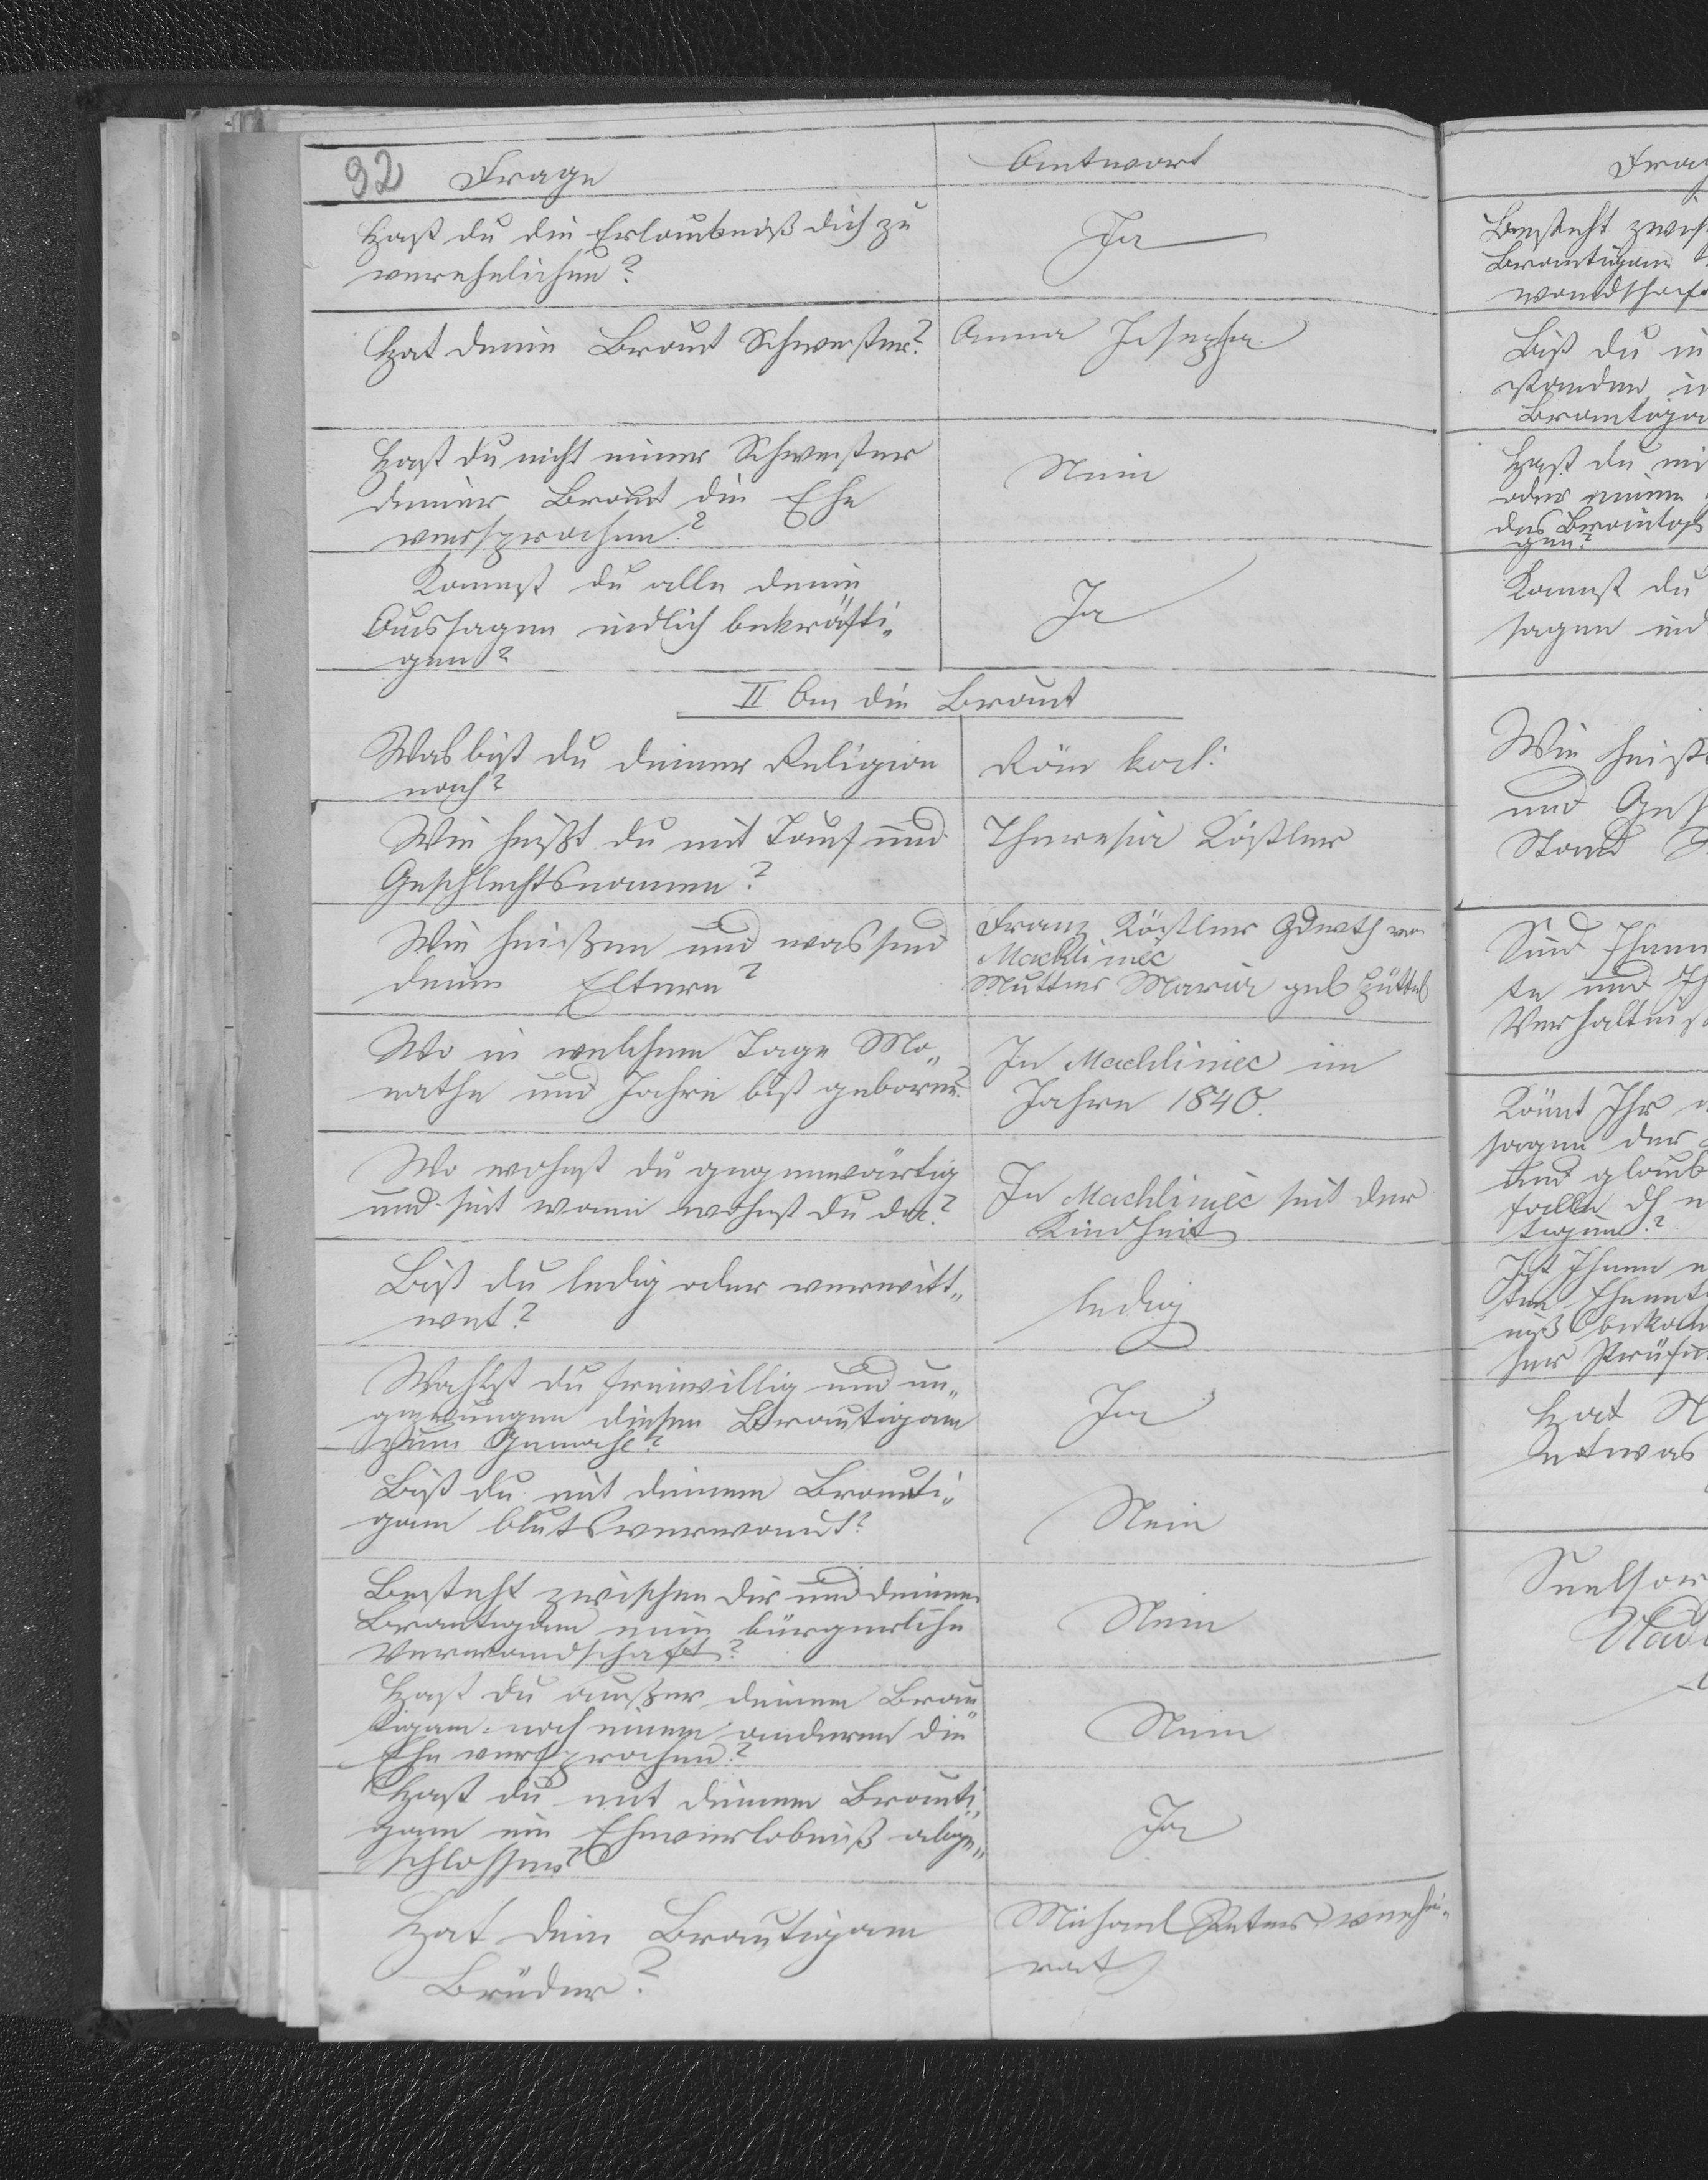 92 Frage
Antwort
Hast du die Erlaubniß dich zu
verehelichen?
Ja
Hat deine Braut Schwester?
Anna Josepha
Hast du nicht einer Schwester
deiner Braut die Ehe
versprochen?
Nein
Kannst du alle deine
Aussagen eidlich bekräfti„
gen?
Ja
II An die Braut
Was bist du deiner Religion
nach?
Röm kat:
Wie heißt du mit Tauf und
Geschlechtsnamen?
Theresia Köstler
Wie heißen und was sind
deine Eltern?
Franz Köstler Gdwth von
Machliniec
Mutter Maria geb Hüttl
Wo in welchem Tage Mo„
nathe und Jahre bist geboren?
In Machliniec im
Jahre 1840.
Wo wohnst du gegenwärtig
und seit wann wohnst du da?
In Machliniec seit der
Kindheit
Bist du ledig oder verwitt„
wet?
ledig
Wahlst du freiwillig und un„
gezwungen diesen Brautigam
zum Gemahl?
Ja
Bist du mit deinem Brauti„
gam blutsverwandt?
Nein
Besteht zwischen dir und deinem
Brautigam eine bürgerliche
Verwandschaft?
Nein
Hast du außer deinem Brau
tigam noch einem anderen die
Ehe versprochen?
Nein
Hast du mit deinem Brauti„
gam ein Eheverlobniß abge„
schlossen?
Ja
Hat dein Brautigam
Brüder?
Michael Peter verhei„
rat
Frag
Besteht zwisch
Brautigam
wandschaft
Bist du in
standen in
Brautigam
Hast du
oder einem
des Brautig
gen?
Kannst du
sagen eid
Wie heißt
und Gesch
Stand
Sind Ihnen
te und Ih
Verhaltniß
Könnt Ihr
sagen der
und glaub
falle
tigen?
Ist Ihnen
Ehe
niß bekan
her Prüfu
Hat
etwas
Seelsor